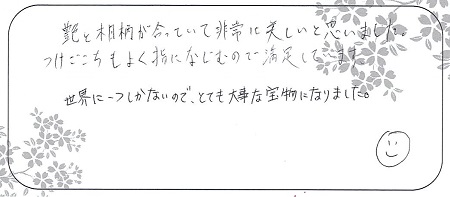 艶と相柄が合っていて非常に美しいと思いました。
つけごこちもよく指になじむので満足しています
世界に一つしかないので、とても大事な宝物になりました。